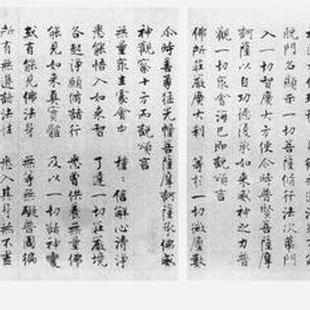 脫門名顯示一切菩薩修行法次第門
入一切智廣大方便尒時普賢菩薩摩
訶薩以自功德復承如來威神之力普
觀一切眾會海已即說頌言
佛所莊嚴廣大剎 等於一切微塵數
尒時善勇猛幢菩薩摩訶薩承佛威
神觀察十方而說頌言
無量眾生處會中 種種信解心清淨
悉能悟入如來智 了達一切莊嚴境
各起淨願修諸行 悉曾供養無量佛
能見如來真實體 及以一切諸神變
或有能見佛法身 無等無礙普周遍
所有無邊諸法性 悉入其身無不盡